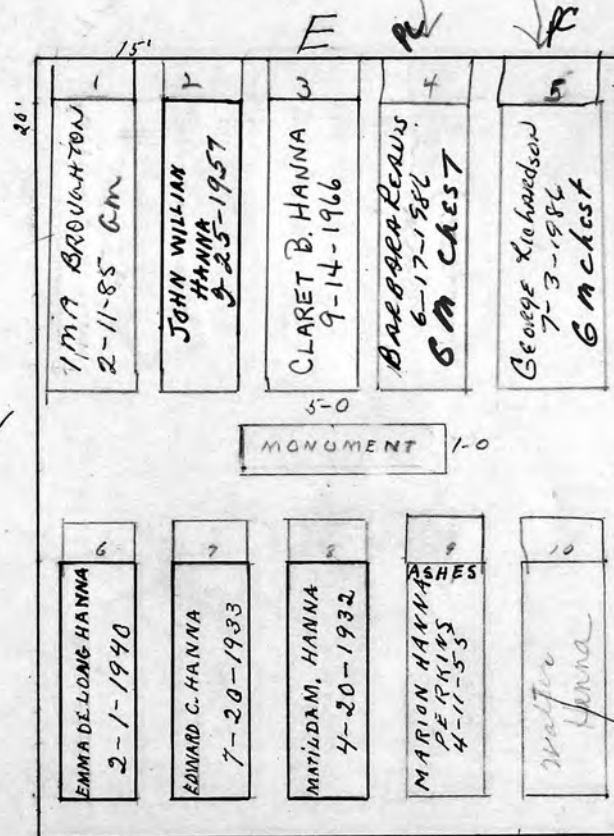 15'
E
PC
PC
20'
1
2
3
4
5
IMA BROUGHTON
2-11-85 am
JOHN WILLIAM
HANNA
2-25-1957
CLARET B. HANNA
9-14-1966
BARBARA
6-17-1986
GM CHEST
GEORGE Richardson
7-3-1986
GM chest
5-0
MONUMENT
1-0
6
7
8
9
10
EMMA DE LONG HANNA
2-1-1940
EDWARD C. HANNA
7-20-1933
MATILDA M. HANNA
4-20-1932
ASHES
MARION HANNA
PERKINS
4-11-55
Walter
Hanna